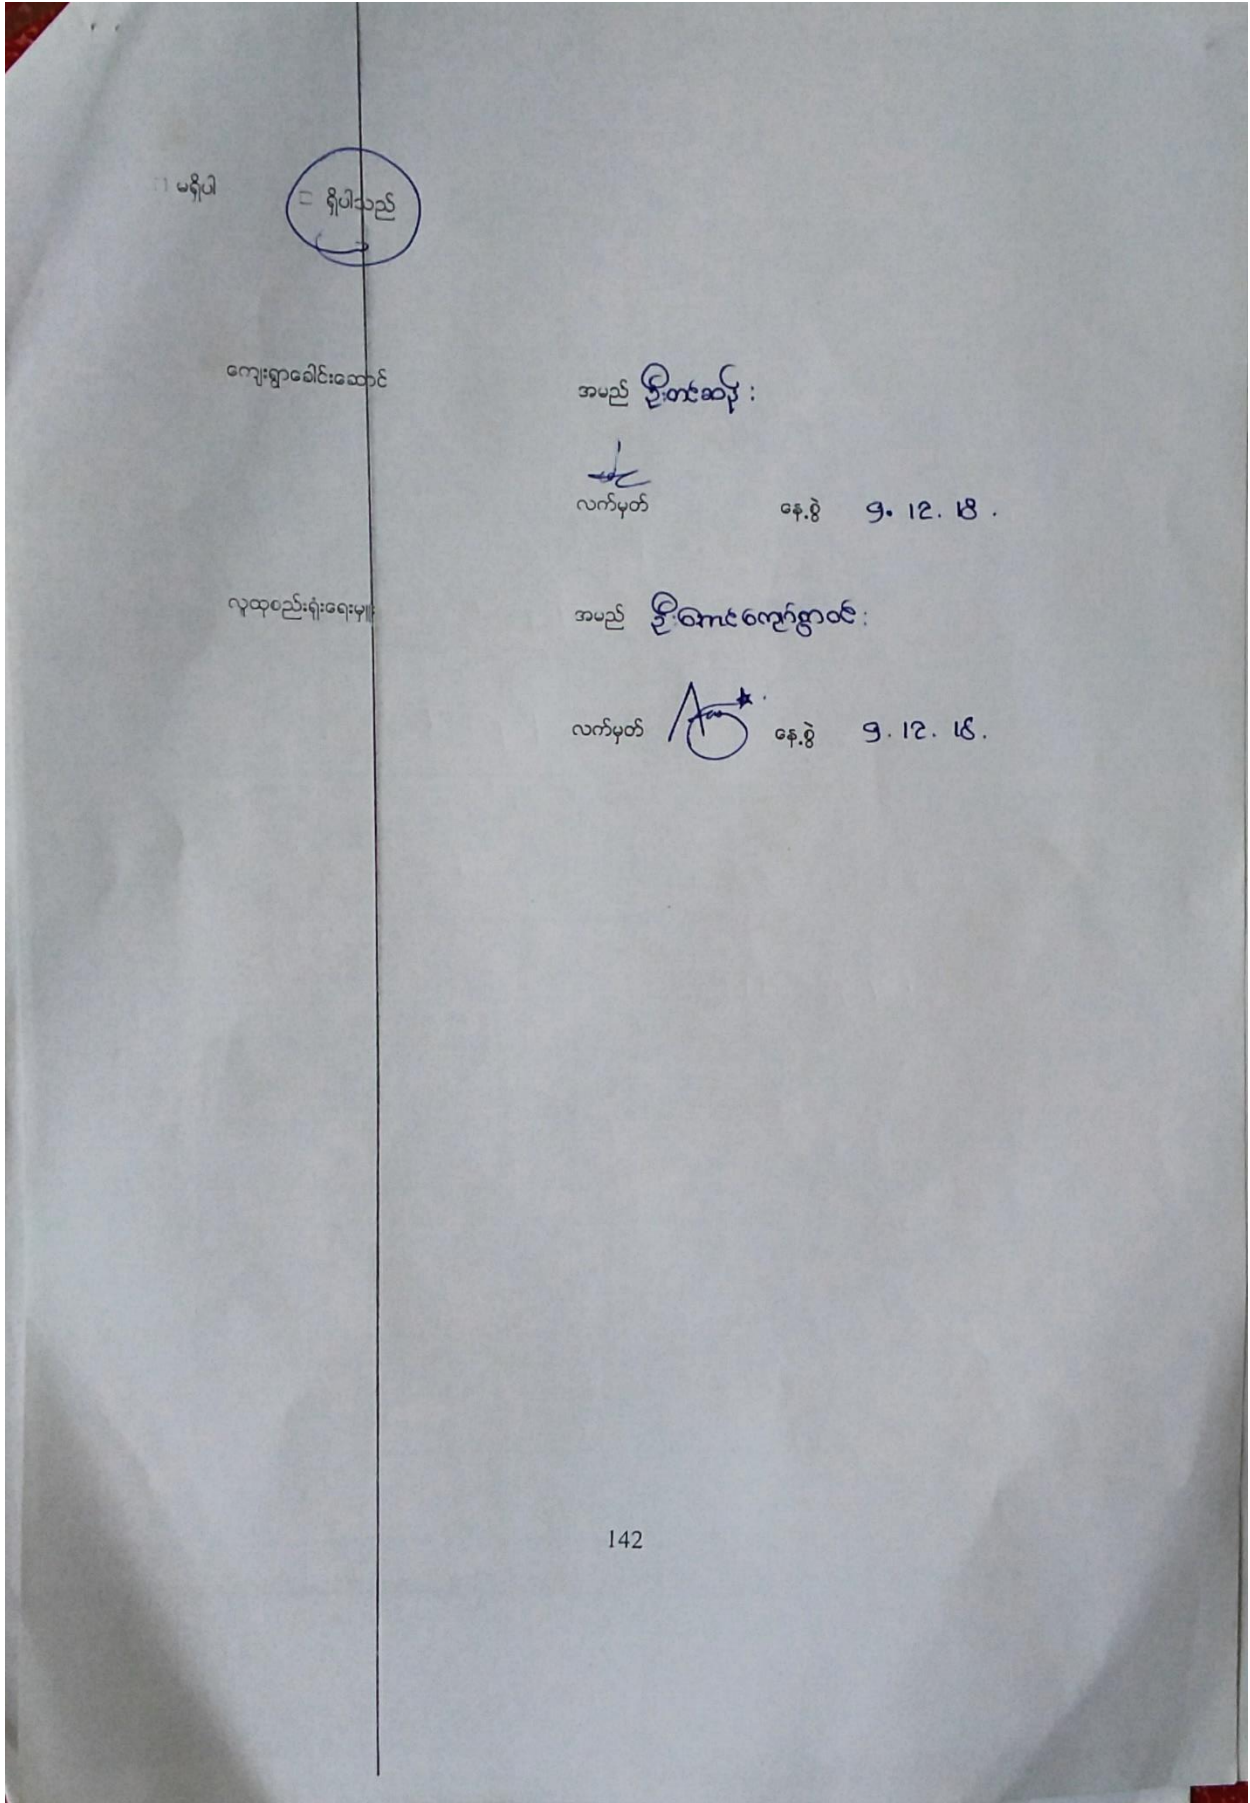 □ မရှိပါ □ ရှိပါသည်
ကျေးရွာခေါင်းဆောင် အမည် ဦးတင်ဆန်း
လက်မှတ် နေ့စွဲ 9. 12. 18.
လူထုစည်းရုံးရေးမှူး အမည် ဦးအောင်ကျော်စွာဝင်း
လက်မှတ် နေ့စွဲ 9. 12. 18.
142